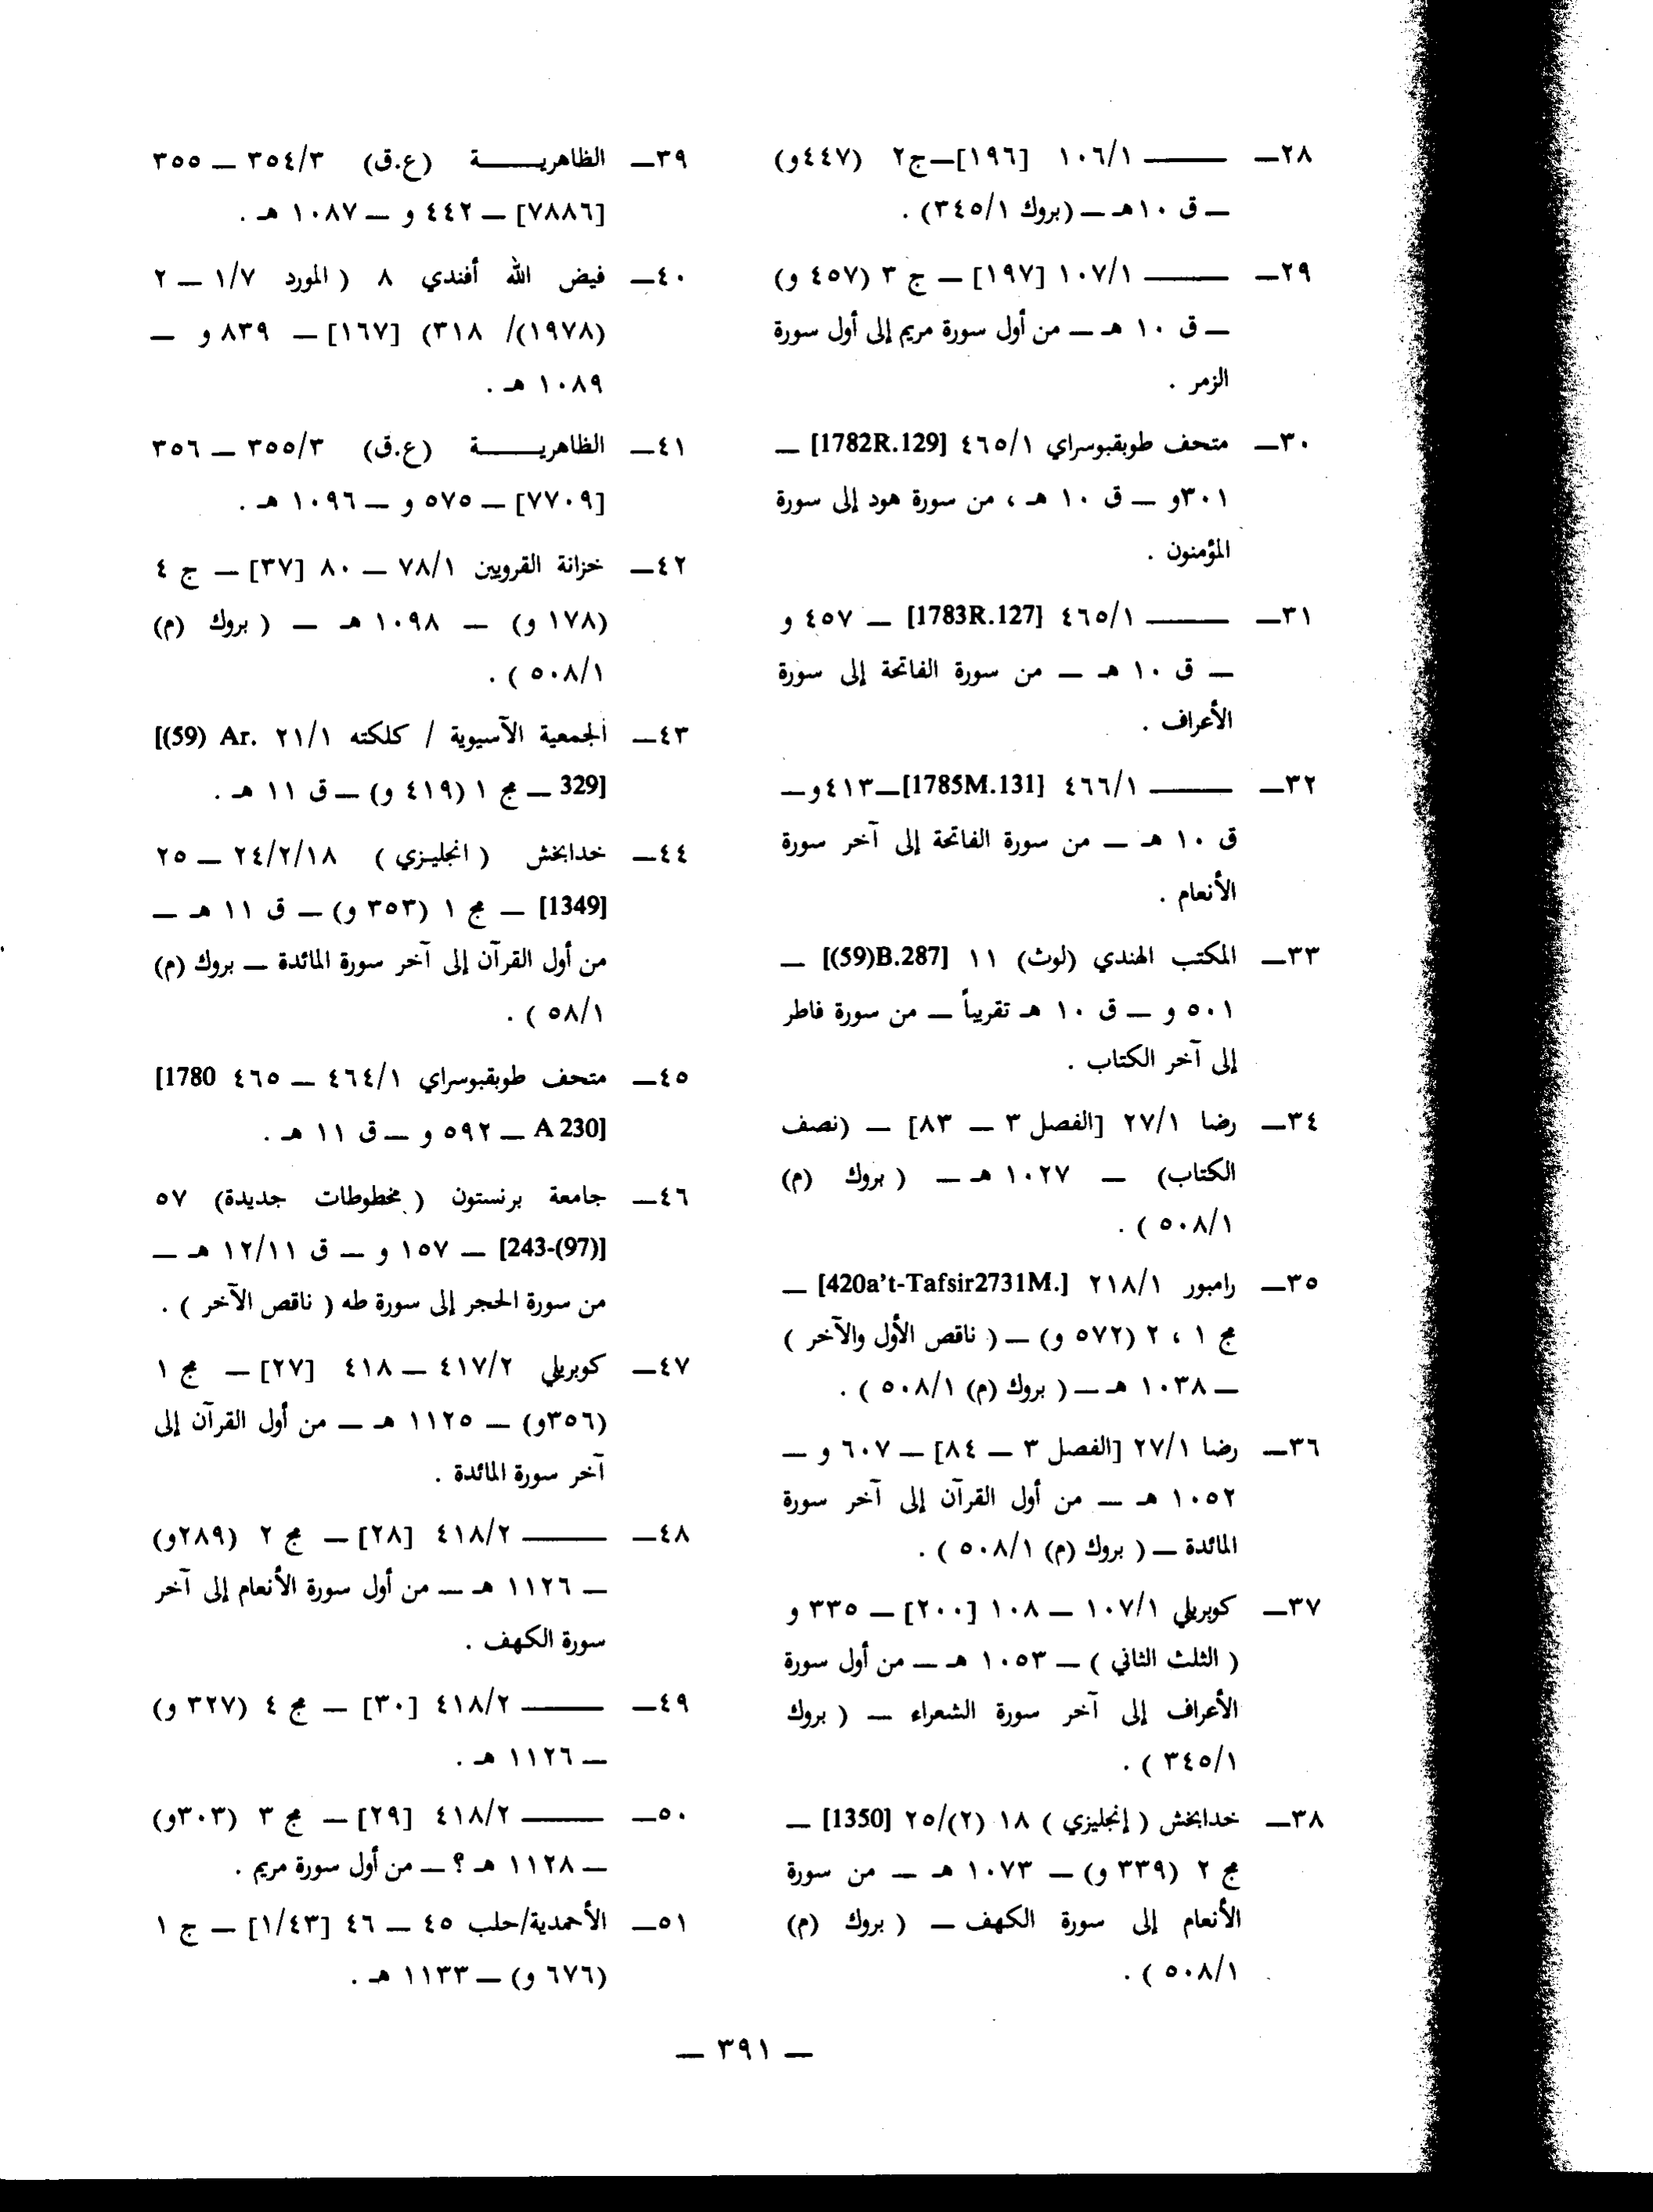 ٢٨ـ ــــــ ١٠٦/١ [١٩٦]ــ ج٢ (٤٤٧و)
ــ ق ١٠هـ ــ (بروك ٣٤٥/١) .
٢٩ـ ــــــ ١٠٧/١ [١٩٧] ــ ج ٣ (٤٥٧ و)
ــ ق ١٠ هـ ــ من أول سورة مريم إلى أول سورة
الزمر .
٣٠ـ متحف طوبقبوسراي ٤٦٥/١ [1782R.129] ــ
٣٠١و ــ ق ١٠ هـ ، من سورة هود إلى سورة
المؤمنون .
٣١ـ ــــــ ٤٦٥/١ [1783R.127] ــ ٤٥٧ و
ــ ق ١٠ هـ ــ من سورة الفاتحة إلى سورة
الأعراف .
٣٢ـ ــــــ ٤٦٦/١ [1785M.131]ــ ٤١٣و ــ
ق ١٠ هـ ــ من سورة الفاتحة إلى آخر سورة
الأنعام .
٣٣ـ المكتب الهندي (لوث) ١١ [(59)B.287] ــ
٥٠١ و ــ ق ١٠ هـ تقريباً ــ من سورة فاطر
إلى آخر الكتاب .
٣٤ـ رضا ٢٧/١ [الفصل ٣ ــ ٨٣] ــ (نصف
الكتاب) ــ ١٠٢٧ هـ ــ ( بروك (م)
٥٠٨/١ ) .
٣٥ـ رامبور ٢١٨/١ [420a't-Tafsir2731M.] ــ
مج ١ ، ٢ (٥٧٢ و) ــ ( ناقص الأول والآخر )
ــ ١٠٣٨ هـ ــ ( بروك (م) ٥٠٨/١ ) .
٣٦ـ رضا ٢٧/١ [الفصل ٣ ــ ٨٤] ــ ٦٠٧ و ــ
١٠٥٢ هـ ــ من أول القرآن إلى آخر سورة
المائدة ــ ( بروك (م) ٥٠٨/١ ) .
٣٧ـ كوبريلي ١٠٧/١ ــ ١٠٨ [٢٠٠] ــ ٣٣٥ و
( الثلث الثاني ) ــ ١٠٥٣ هـ ــ من أول سورة
الأعراف إلى آخر سورة الشعراء ــ ( بروك
٣٤٥/١ ) .
٣٨ـ خدابخش ( إنجليزي ) ١٨ (٢)/٢٥ [1350] ــ
مج ٢ (٣٣٩ و) ــ ١٠٧٣ هـ ــ من سورة
الأنعام إلى سورة الكهف ــ ( بروك (م)
٥٠٨/١ ) .
٣٩ـ الظاهريــــة (ع.ق) ٣٥٤/٣ ــ ٣٥٥
[٧٨٨٦] ــ ٤٤٢ و ــ ١٠٨٧ هـ .
٤٠ـ فيض الله أفندي ٨ ( المورد ١/٧ ــ ٢
(١٩٧٨)/ ٣١٨) [١٦٧] ــ ٨٣٩ و ــ
١٠٨٩ هـ .
٤١ـ الظاهريــــة (ع.ق) ٣٥٥/٣ ــ ٣٥٦
[٧٧٠٩] ــ ٥٧٥ و ــ ١٠٩٦ هـ .
٤٢ـ خزانة القرويين ٧٨/١ ــ ٨٠ [٣٧] ــ ج ٤
(١٧٨ و) ــ ١٠٩٨ هـ ــ ( بروك (م)
٥٠٨/١ ) .
٤٣ـ الجمعية الآسيوية / كلكته ٢١/١ [(59) Ar.
329] ــ مج ١ (٤١٩ و) ــ ق ١١ هـ .
٤٤ـ خدابخش ( انجليزي ) ٢٤/٢/١٨ ــ ٢٥
[1349] ــ مج ١ (٣٥٣ و) ــ ق ١١ هـ ــ
من أول القرآن إلى آخر سورة المائدة ــ بروك (م)
٥٨/١ ) .
٤٥ـ متحف طوبقبوسراي ٤٦٤/١ ــ ٤٦٥ [1780
A 230] ــ ٥٩٢ و ــ ق ١١ هـ .
٤٦ـ جامعة برنستون ( مخطوطات جديدة) ٥٧
[243-(97)] ــ ١٥٧ و ــ ق ١٢/١١ هـ ــ
من سورة الحجر إلى سورة طه ( ناقص الآخر ) .
٤٧ـ كوبريلي ٤١٧/٢ ــ ٤١٨ [٢٧] ــ مج ١
(٣٥٦و) ــ ١١٢٥ هـ ــ من أول القرآن إلى
آخر سورة المائدة .
٤٨ـ ــــــ ٤١٨/٢ [٢٨] ــ مج ٢ (٢٨٩و)
ــ ١١٢٦ هـ ــ من أول سورة الأنعام إلى آخر
سورة الكهف .
٤٩ـ ــــــ ٤١٨/٢ [٣٠] ــ مج ٤ (٣٢٧ و)
ــ ١١٢٦ هـ .
٥٠ـ ــــــ ٤١٨/٢ [٢٩] ــ مج ٣ (٣٠٣و)
ــ ١١٢٨ هـ ؟ ــ من أول سورة مريم .
٥١ـ الأحمدية/حلب ٤٥ ــ ٤٦ [١/٤٣] ــ ج ١
(٦٧٦ و) ــ ١١٣٣ هـ .
ــ ٣٩١ ــ